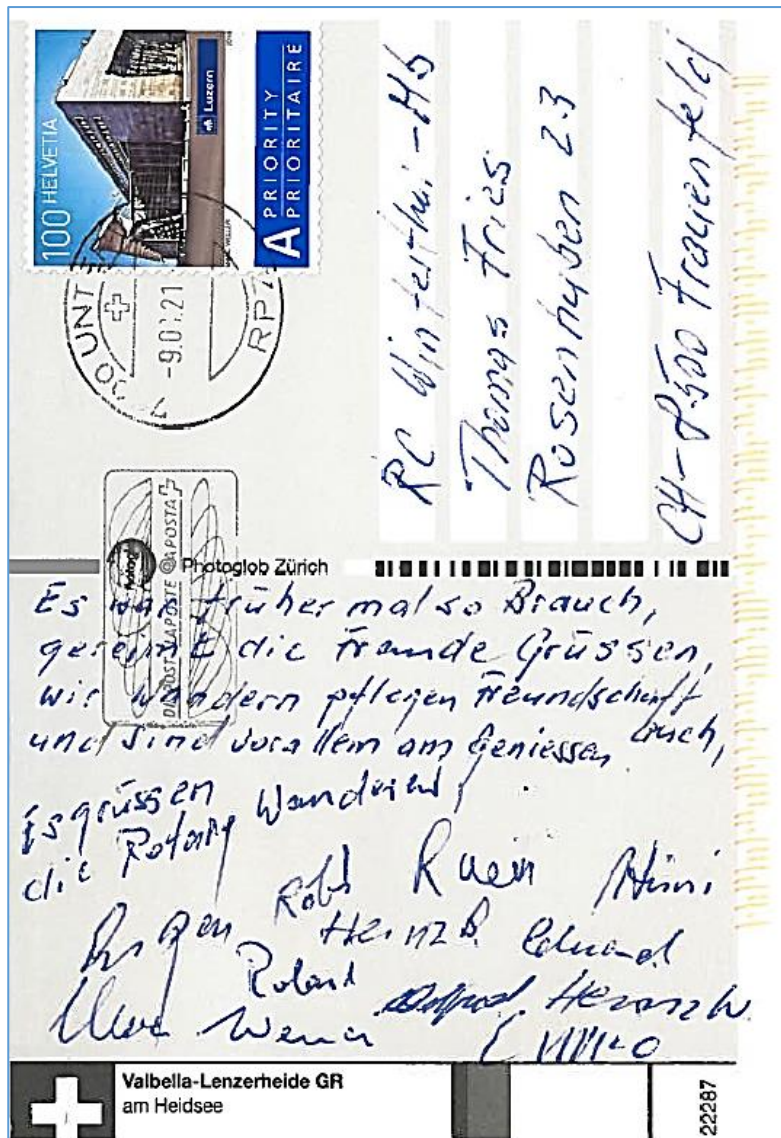 100 HELVETIA
Luzern
A PRIORITY
PRIORITAIRE
-9.0 .21
RC Winterthur-Mö
Thomas Fries
Rosenhuben 23
CH-8500 Frauenfeld
DIE POST LA POSTE LA POSTA
Photoglob Zürich
Es war früher mal so Brauch,
gereimt die Freunde Grüssen,
wir wandern pflegen Freundschaft
auch,
und sind vor allem am Geniessen
Es grüssen
die Rotary Wanderer
Ruedi
Heinz B. Eduard
Roland
Werner Heinz W.
Valbella-Lenzerheide GR
am Heidsee
22287